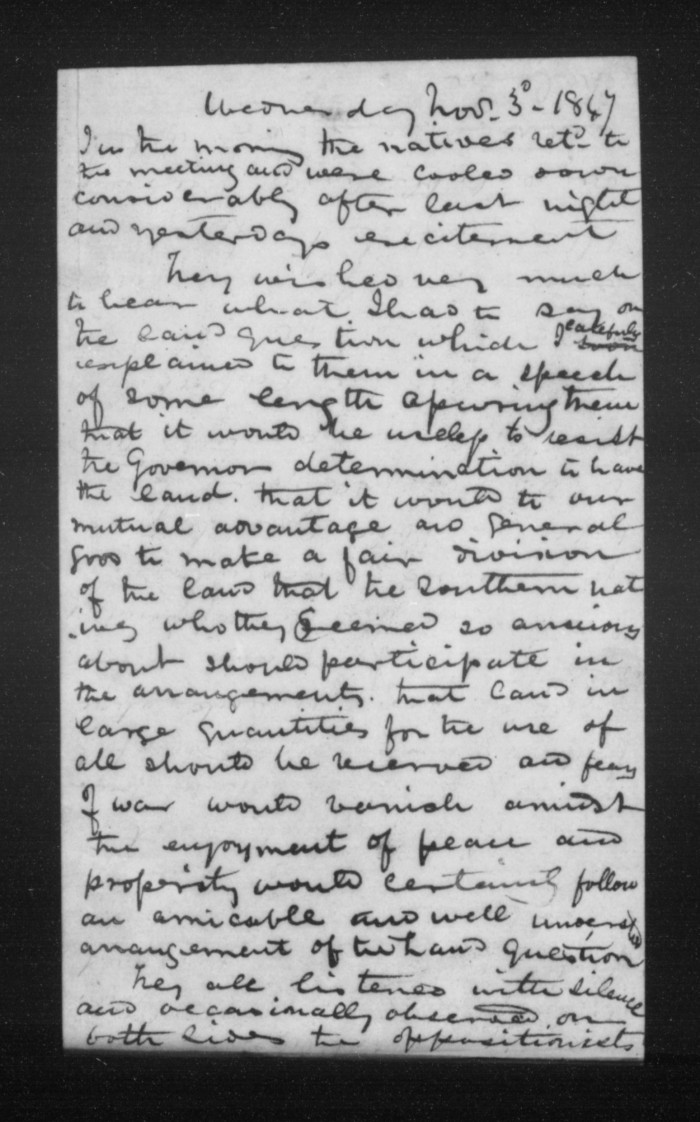 Wednesday Nov. 3d - 1847
In the morning the natives retd. to
the meeting and were cooled down
considerably after last night
and yesterdays excitement
They wished very much
to hear what I had to say on
the land question which I carefully
explained to them in a speech
of some length assuring them
that it would be useless to resist
the Governor determination to have
the land. that it would to our
mutual advantage and general
good to make a fair division
of the land that the Southern nat
ives who they seemed so anxious
about should participate in
the arrangements. that land in
large quantities for the use of
all should be reserved and fears
of war would vanish amidst
the enjoyment of peace and
prosperity would certainly follow
an amicable and well underst
arrangement of the land question
They all listened with silence
and occasionally observed on
both sides the oppositionists